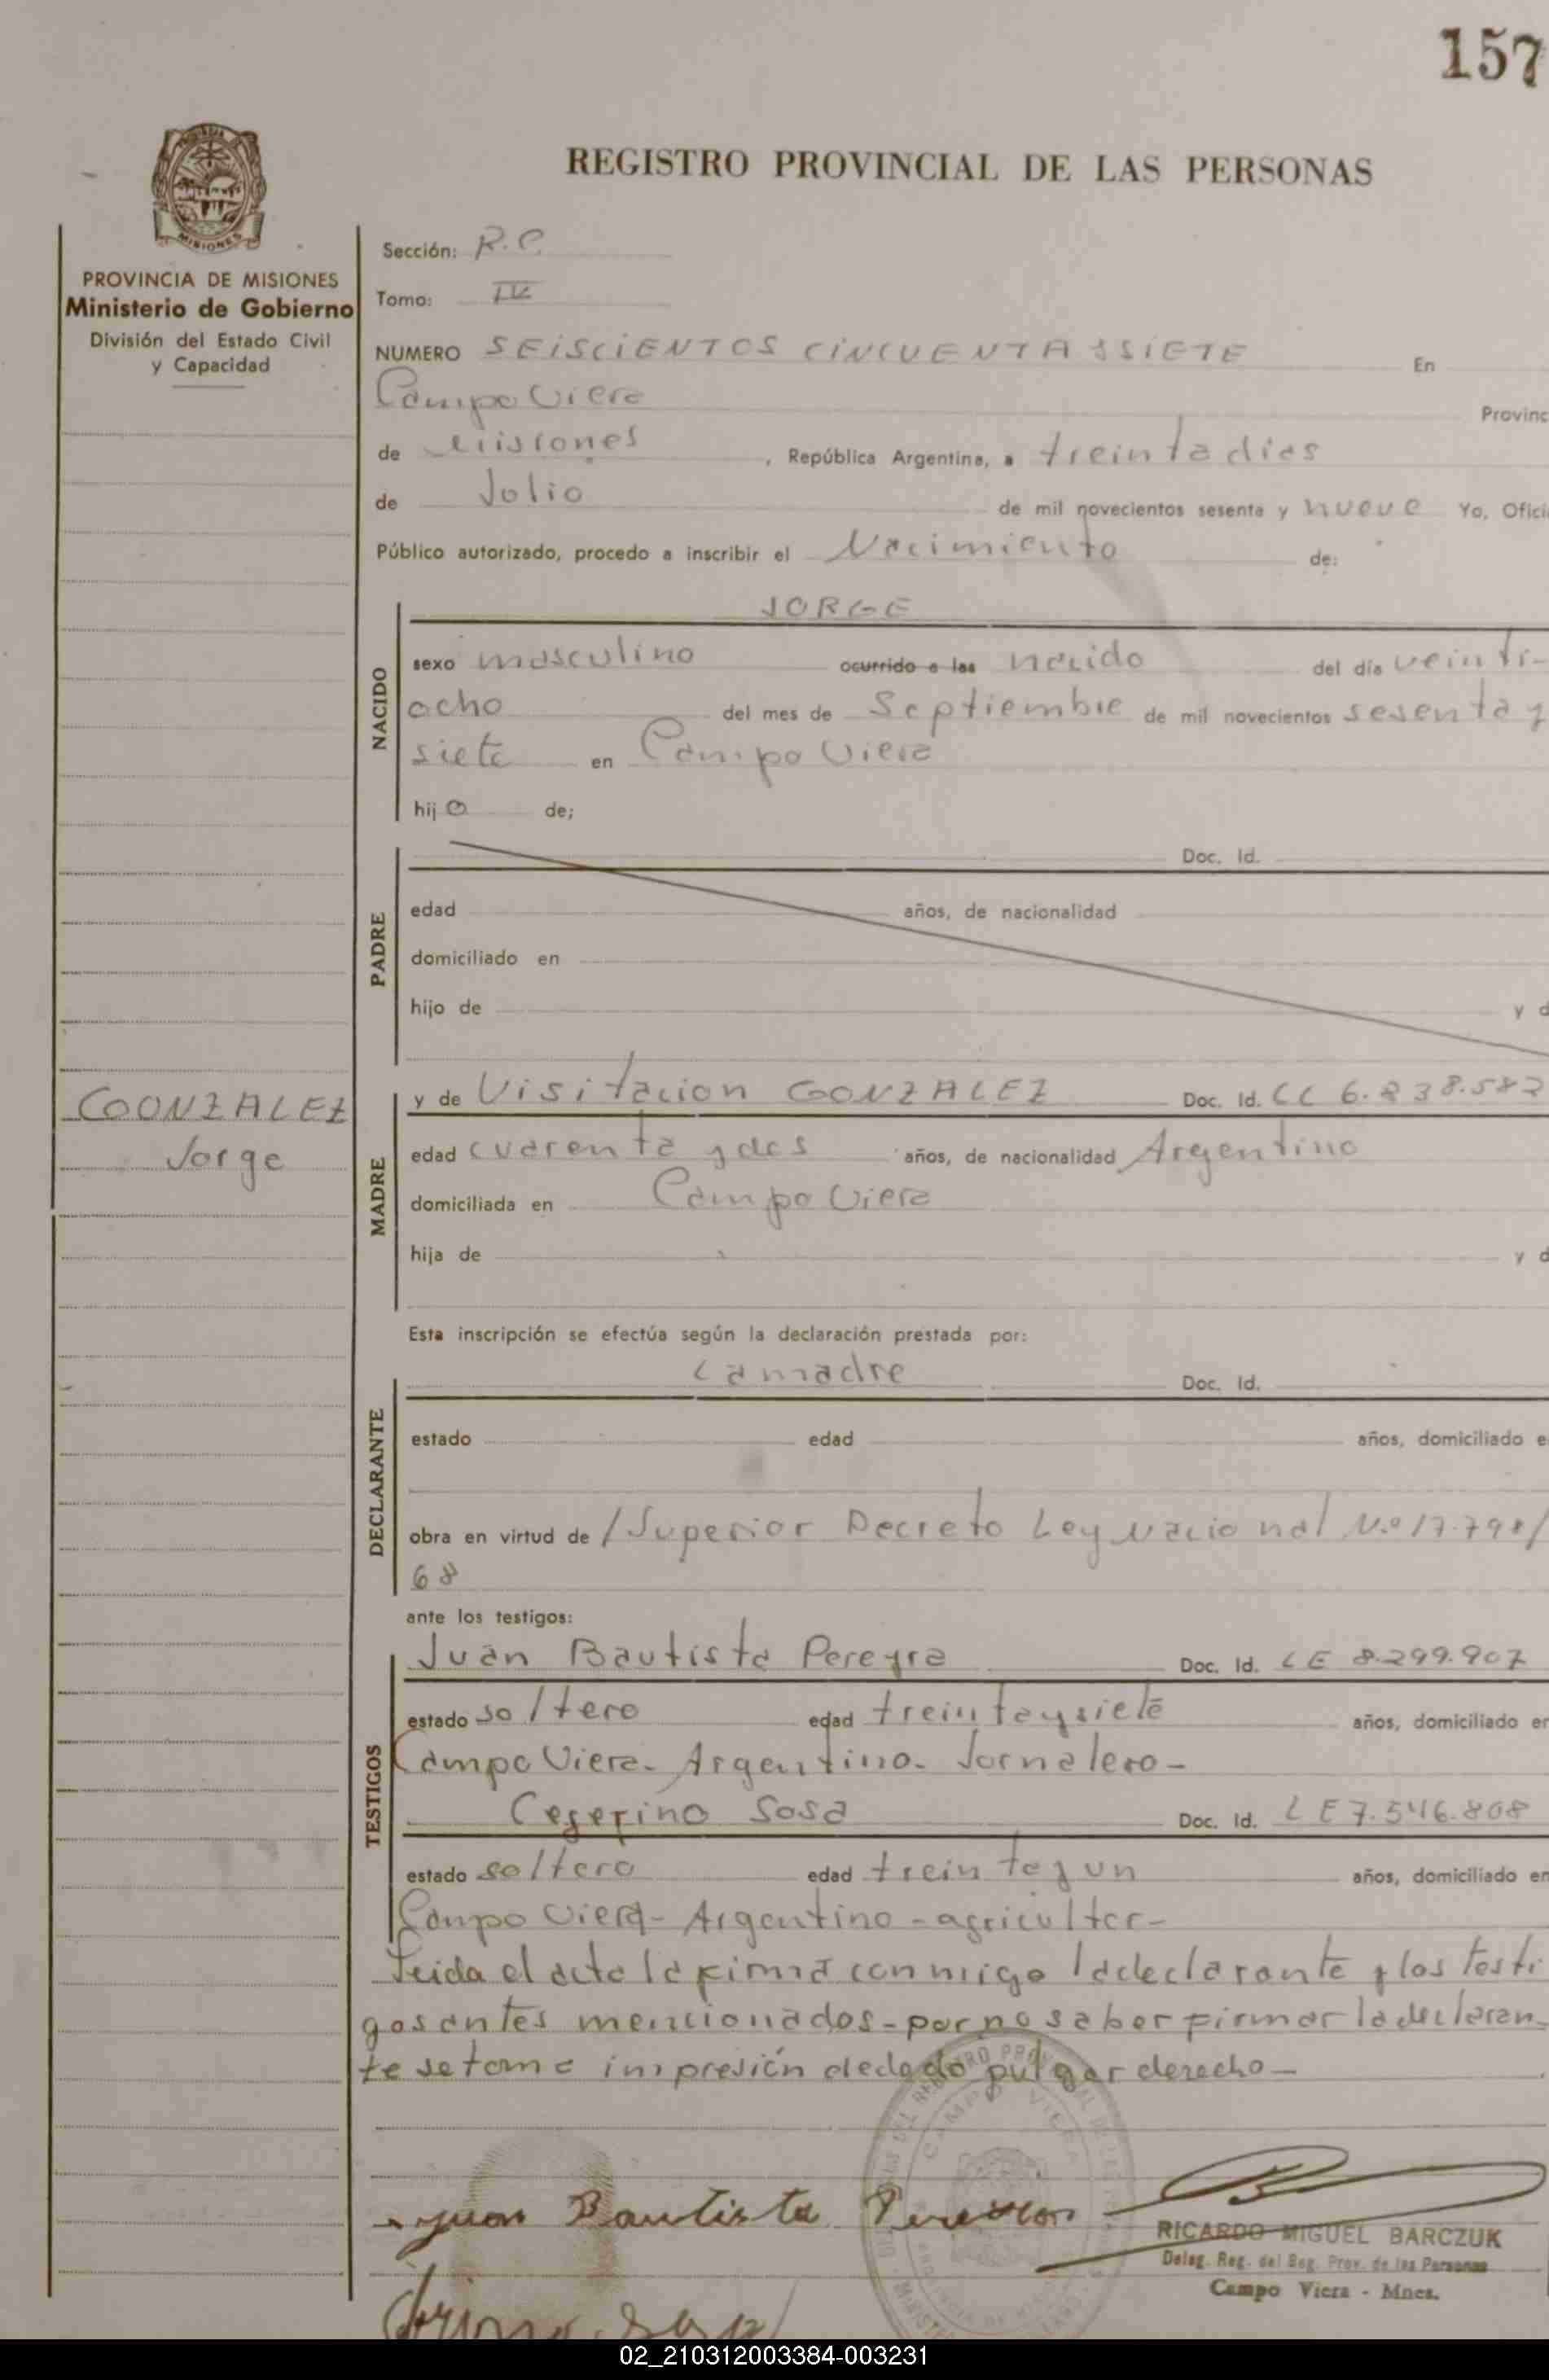 157
REGISTRO PROVINCIAL DE LAS PERSONAS
MISIONES
PROVINCIA DE MISIONES
Ministerio de Gobierno
División del Estado Civil
y Capacidad
Sección: R.C.
Tomo: IV
NUMERO SEiSCiENTOS CiNCUENTA y SiETE En
Campo Viera Provinc
de Misiones , República Argentina, a treinta dias
de Julio de mil novecientos sesenta y nueve Yo, Ofici
Público autorizado, procedo a inscribir el Nacimiento de:
NACIDO
JORGE
sexo masculino ocurrido a las nacido del día veinti-
ocho del mes de Septiembre de mil novecientos sesenta y
siete en Campo Viera
hijo de;
PADRE
Doc. Id.
edad años, de nacionalidad
domiciliado en
hijo de y d
COONZALEZ
Jorge
MADRE
y de Visitacion GONZALEZ Doc. Id. CC 6.838.582
edad cuarenta y dos años, de nacionalidad Argentino
domiciliada en Campo Viera
hija de y d
Esta inscripción se efectúa según la declaración prestada por:
DECLARANTE
La madre Doc. Id.
estado edad años, domiciliado e
obra en virtud de /Superior Decreto Ley Nacional N.º 17.798/
68
ante los testigos:
TESTIGOS
Juan Bautista Pereyra Doc. Id. LE 8.299.907
estado soltero edad treinta y siete años, domiciliado en
Campo Viera- Argentino- Jornalero-
Ceferino Sosa Doc. Id. LE 7.546.808
estado soltero edad treinta y un años, domiciliado en
Campo Viera- Argentino- agricultor-
Leida el acta la firma conmigo la declarante y los testi
gos antes mencionados- por no saber firmar la declaran-
te se toma impresión dedo pulgar derecho-
Juan Bautista
RICARDO MIGUEL BARCZUK
Deleg. Reg. del Reg. Prov. de las Personas
Campo Viera - Mnes.
CAMPO VIERA
02_210312003384-003231